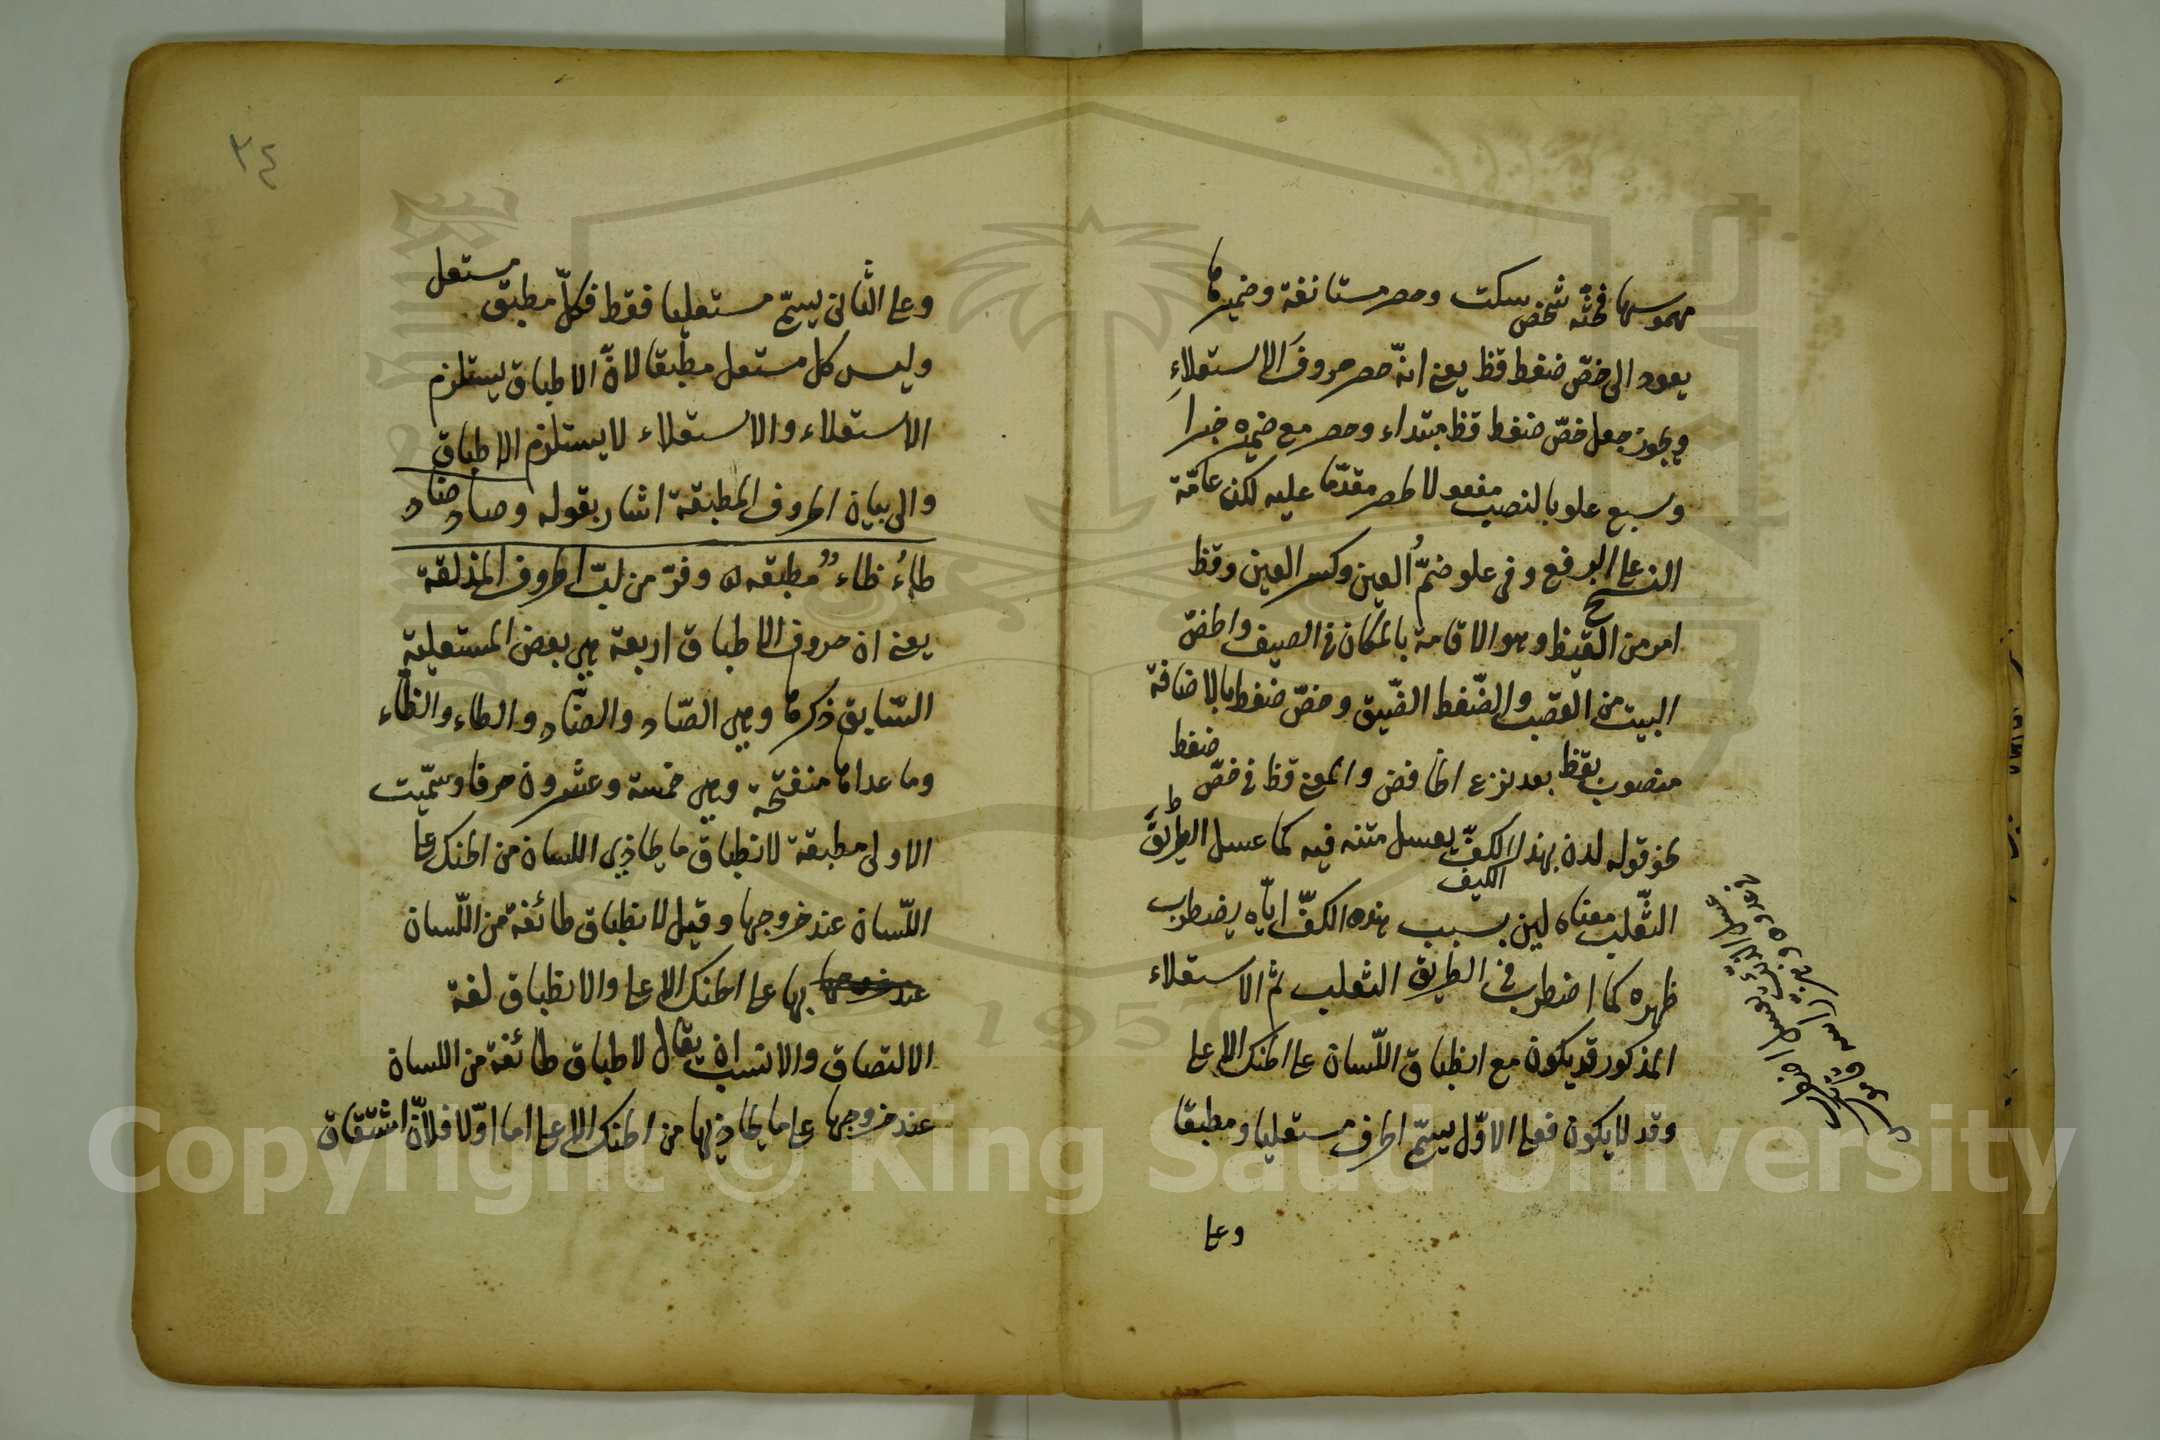 مهموسها فحثه شخص سكت وحصر مستانفة وضميرها
يعود الى خصّ ضغط قظ يعني انّه حصر حروف الاستعلاءِ
ويجوز جعل خصّ ضغط قظ مبتداء وحصر مع ضميره خبرا
وسبع علو بالنصب مفعولا لحصر مقدّما عليه لكن عامّة
النسخ على الرفع وفي علو ضمُّ العين وكسر العين وقظ
امر من القيظ وهو الاقامة بالمكان في الصيف والخصّ
البيت من القصب والضّغط الضّيق وخصّ ضغط بالاضافة
منصوب بقظ بعد نزع الخافض والمعنى قظ في خصّ ضغط
نحو قوله لدن بهذا الكفّ يعسل متنه فيه كما عسل الطريقَ
الكيف
الثّعلب معناه لين بسبب هذه الكفّ ايّاه يضطرب
ظهره كما اضطرب في الطريق الثعلب ثم الاستعلاء
المذكور قد يكون مع انطباق اللّسان على الحنك الاعلى
وقد لا يكون فعلى الاوّل يسمّى الحرف مستعليا ومطبقا
وعلى
٣٤
وعلى الثاني يسمّى مستعليا فقط فكلّ مطبق مستعل
وليس كل مستعل مطبقا لانّ الاطباق يستلزم
الاستعلاء والاستعلاء لا يستلزم الاطباق
والى بيان الحروف المطبقة اشار بقوله وصاد ضاد
طاءُ ظاء مطبقه وفرّ من لبّ الحروف المذلقة
يعني ان حروف الاطباق اربعة هي بعض المستعلية
السّابق ذكرها وهي الصّاد والضّاد والطاء والظاء
وما عداها منفتحة وهي خمسة وعشرون حرفا وسمّيت
الاولى مطبقة لانطباق ما يحاذي اللسان من الحنك على
اللّسان عند خروجها وقيل لانطباق طائفة من اللّسان
عند خروجها بها على الحنك الاعلى والانطباق لغة
الالتصاق والانسب ان يقال لاطباق طائفة من اللسان
عند خروجها على ما يحاذيها من الحنك الاعلى اما اوّلا فلانّ اشتقاق